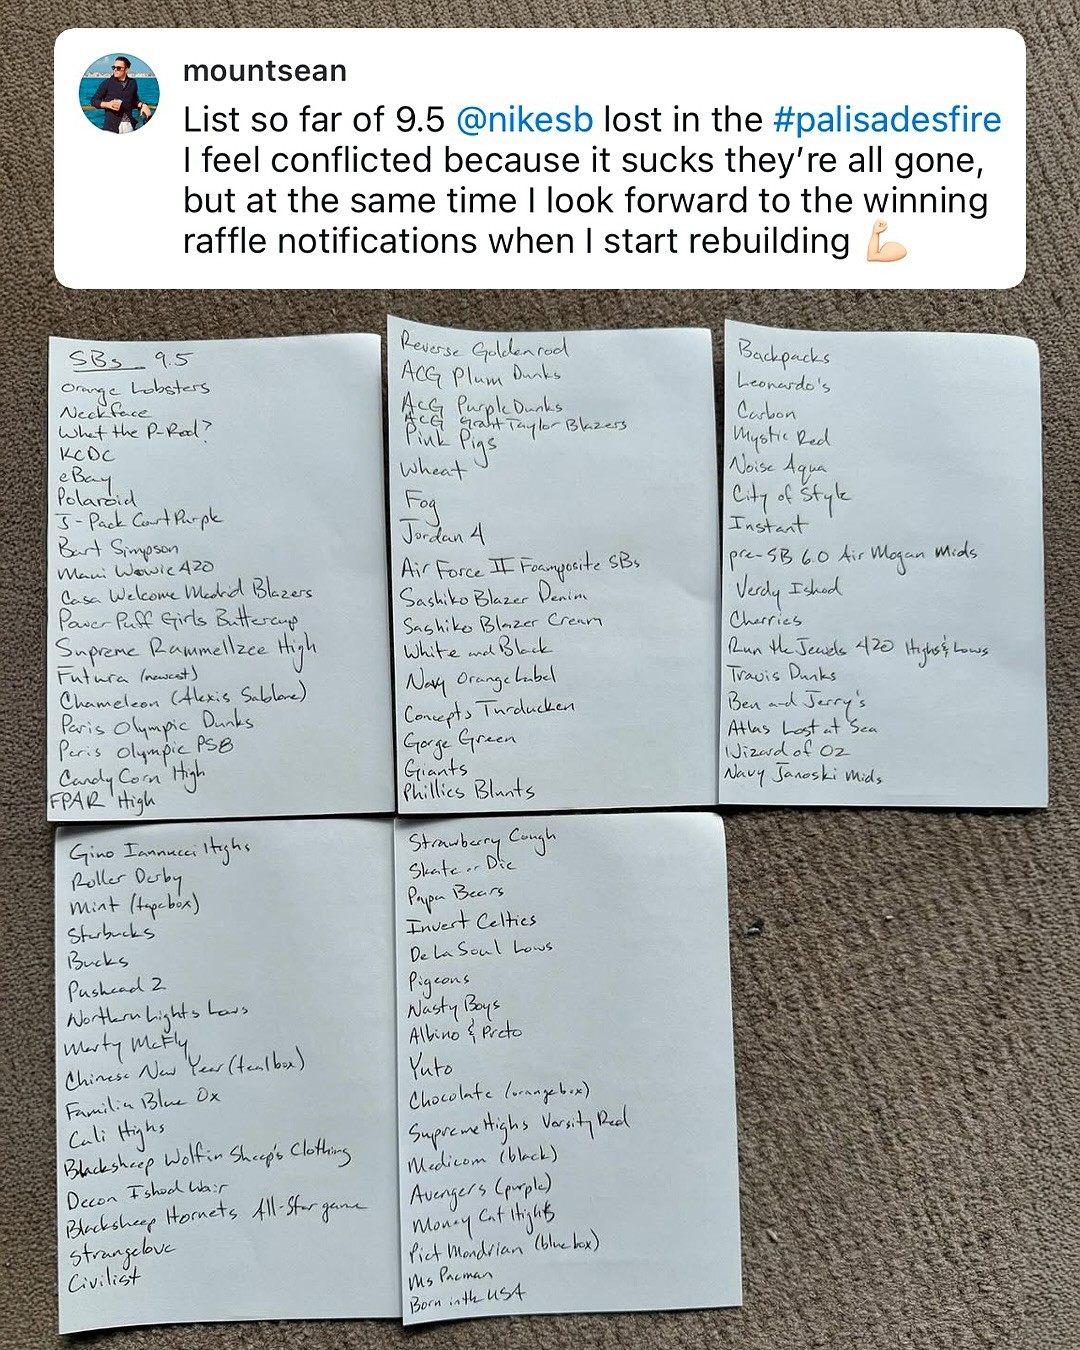 mountsean
List so far of 9.5 @nikesb lost in the #palisadesfire
I feel conflicted because it sucks they’re all gone,
but at the same time I look forward to the winning
raffle notifications when I start rebuilding 💪🏻
SBs 9.5
Orange Lobsters
Neckface
What the P-Rod?
KCDC
eBay
Polaroid
J-Pack Court Purple
Bart Simpson
Maui Wowie 420
Casa Welcome Madrid Blazers
Power Puff Girls Buttercup
Supreme Rammellzee High
Futura (newest)
Chameleon (Alexis Sablone)
Paris Olympic Dunks
Paris Olympic PS8
Candy Corn High
FPAR High
Reverse Goldenrod
ACG Plum Dunks
ACG Purple Dunks
ACG Grant Taylor Blazers
Pink Pigs
Wheat
Fog
Jordan 4
Air Force II Foamposite SBs
Sashiko Blazer Denim
Sashiko Blazer Cream
White and Black
Navy Orange Label
Concepts Turducken
Gorge Green
Giants
Phillies Blunts
Backpacks
Leonardo's
Carbon
Mystic Red
Noise Aqua
City of Style
Instant
pre-SB 6.0 Air Mogan Mids
Verdy Ishod
Cherries
Run the Jewels 420 Highs & Lows
Travis Dunks
Ben and Jerry's
Atlas Lost at Sea
Wizard of Oz
Navy Janoski Mids
Gino Iannucci Highs
Roller Derby
Mint (tapebox)
Starbucks
Bucks
Pushead 2
Northern Lights Lows
Marty McFly
Chinese New Year (tealbox)
Familia Blue Ox
Cali Highs
Blacksheep Wolf in Sheep's Clothing
Decon Ishod Wair
Blacksheep Hornets All-Star game
Strangelove
Civilist
Strawberry Cough
Skate or Die
Papa Bears
Invert Celtics
De La Soul Lows
Pigeons
Nasty Boys
Albino & Preto
Yuto
Chocolate (orangebox)
Supreme Highs Varsity Red
Medicom (black)
Avengers (purple)
Money Cat Highs
Piet Mondrian (bluebox)
Ms Pacman
Born in the USA